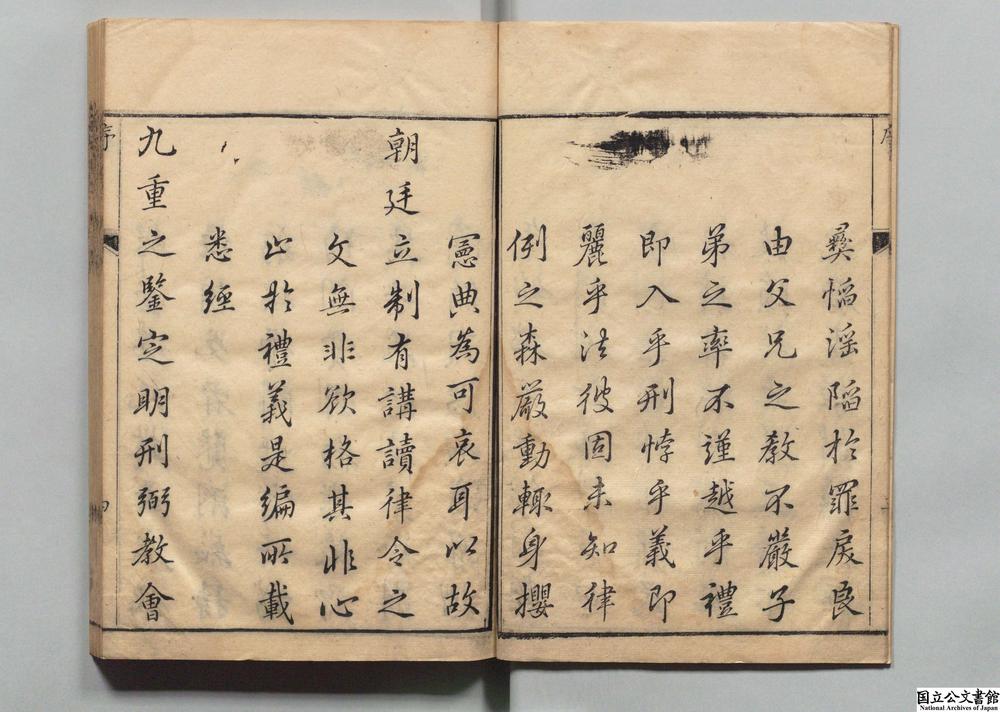 彝慆淫陷於罪戾良
由父兄之教不嚴子
弟之率不謹越乎禮
即入乎刑悖乎義即
麗乎法彼固未知律
例之森嚴動輒身攖
憲典為可哀耳以故
朝廷立制有講讀律令之
文無非欲格其非心
止於禮義是編所載
悉經
九重之鑒定明刑弼教會
序
四
国立公文書館
National Archives of Japan